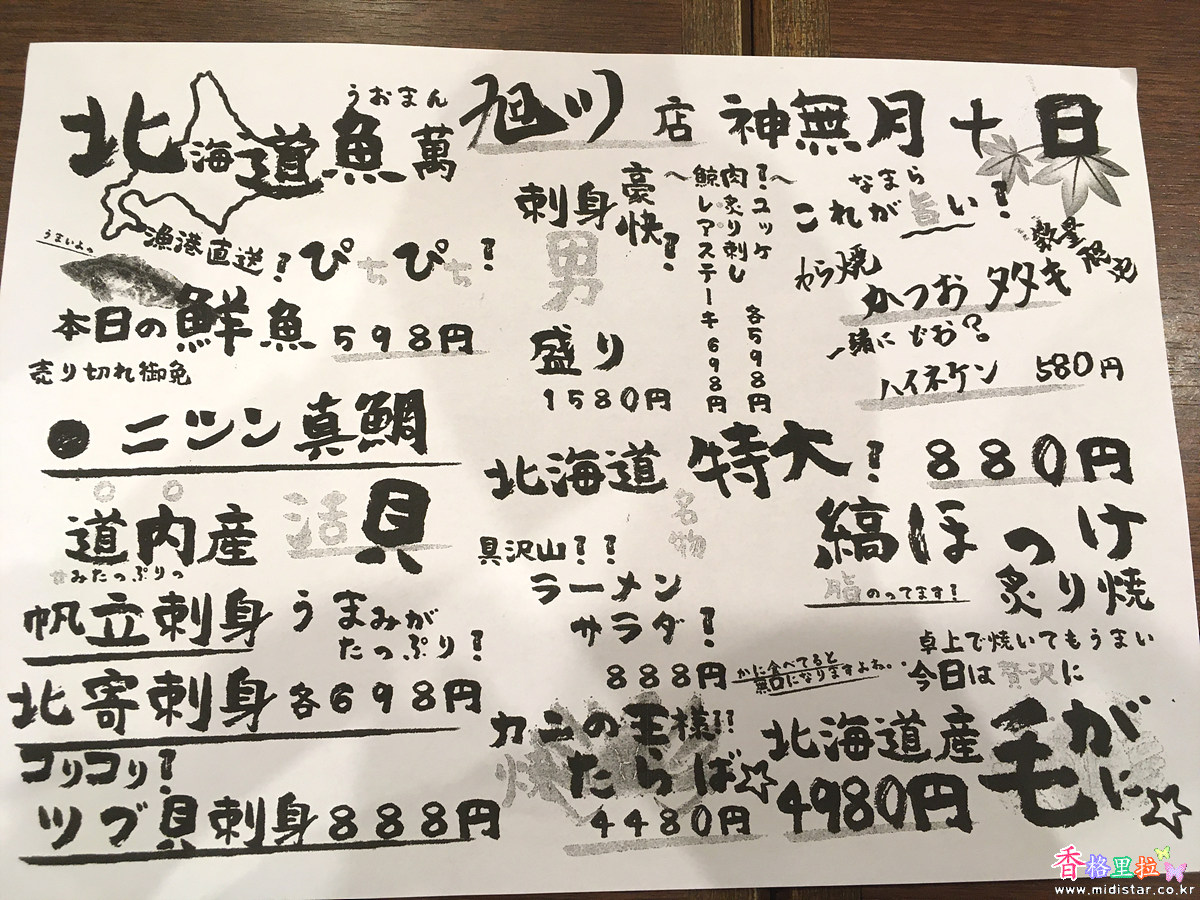 北海道魚萬 旭川店 神無月十日
うおまん
うまいよ。
漁港直送！ぴちぴち！
本日の鮮魚 598円
売り切れ御免
● ニシン 真鯛
道内産 活貝
帆立刺身 うまみが
たっぷり！
北寄刺身 各698円
コリコリ！
ツブ貝刺身 888円
豪快！
刺身
男
盛り
1580円
〜鯨肉炙り刺し！ユッケ〜 各598円
レアステーキ 698円
なまら
これが旨い！
数量限定
わら焼
かつおタタキ
一緒にどお？
ハイネケン 580円
北海道 特大！ 880円
縞ほっけ
炙り焼
脂のってます！
卓上で焼いてもうまい
名物
具沢山！！
ラーメン
サラダ！
888円
かに食べてると
無口になりますよね。
今日は贅沢に
カニの王様!!
焼たらば☆
4480円
北海道産
毛がに☆
4980円
香格里拉
www.midistar.co.kr